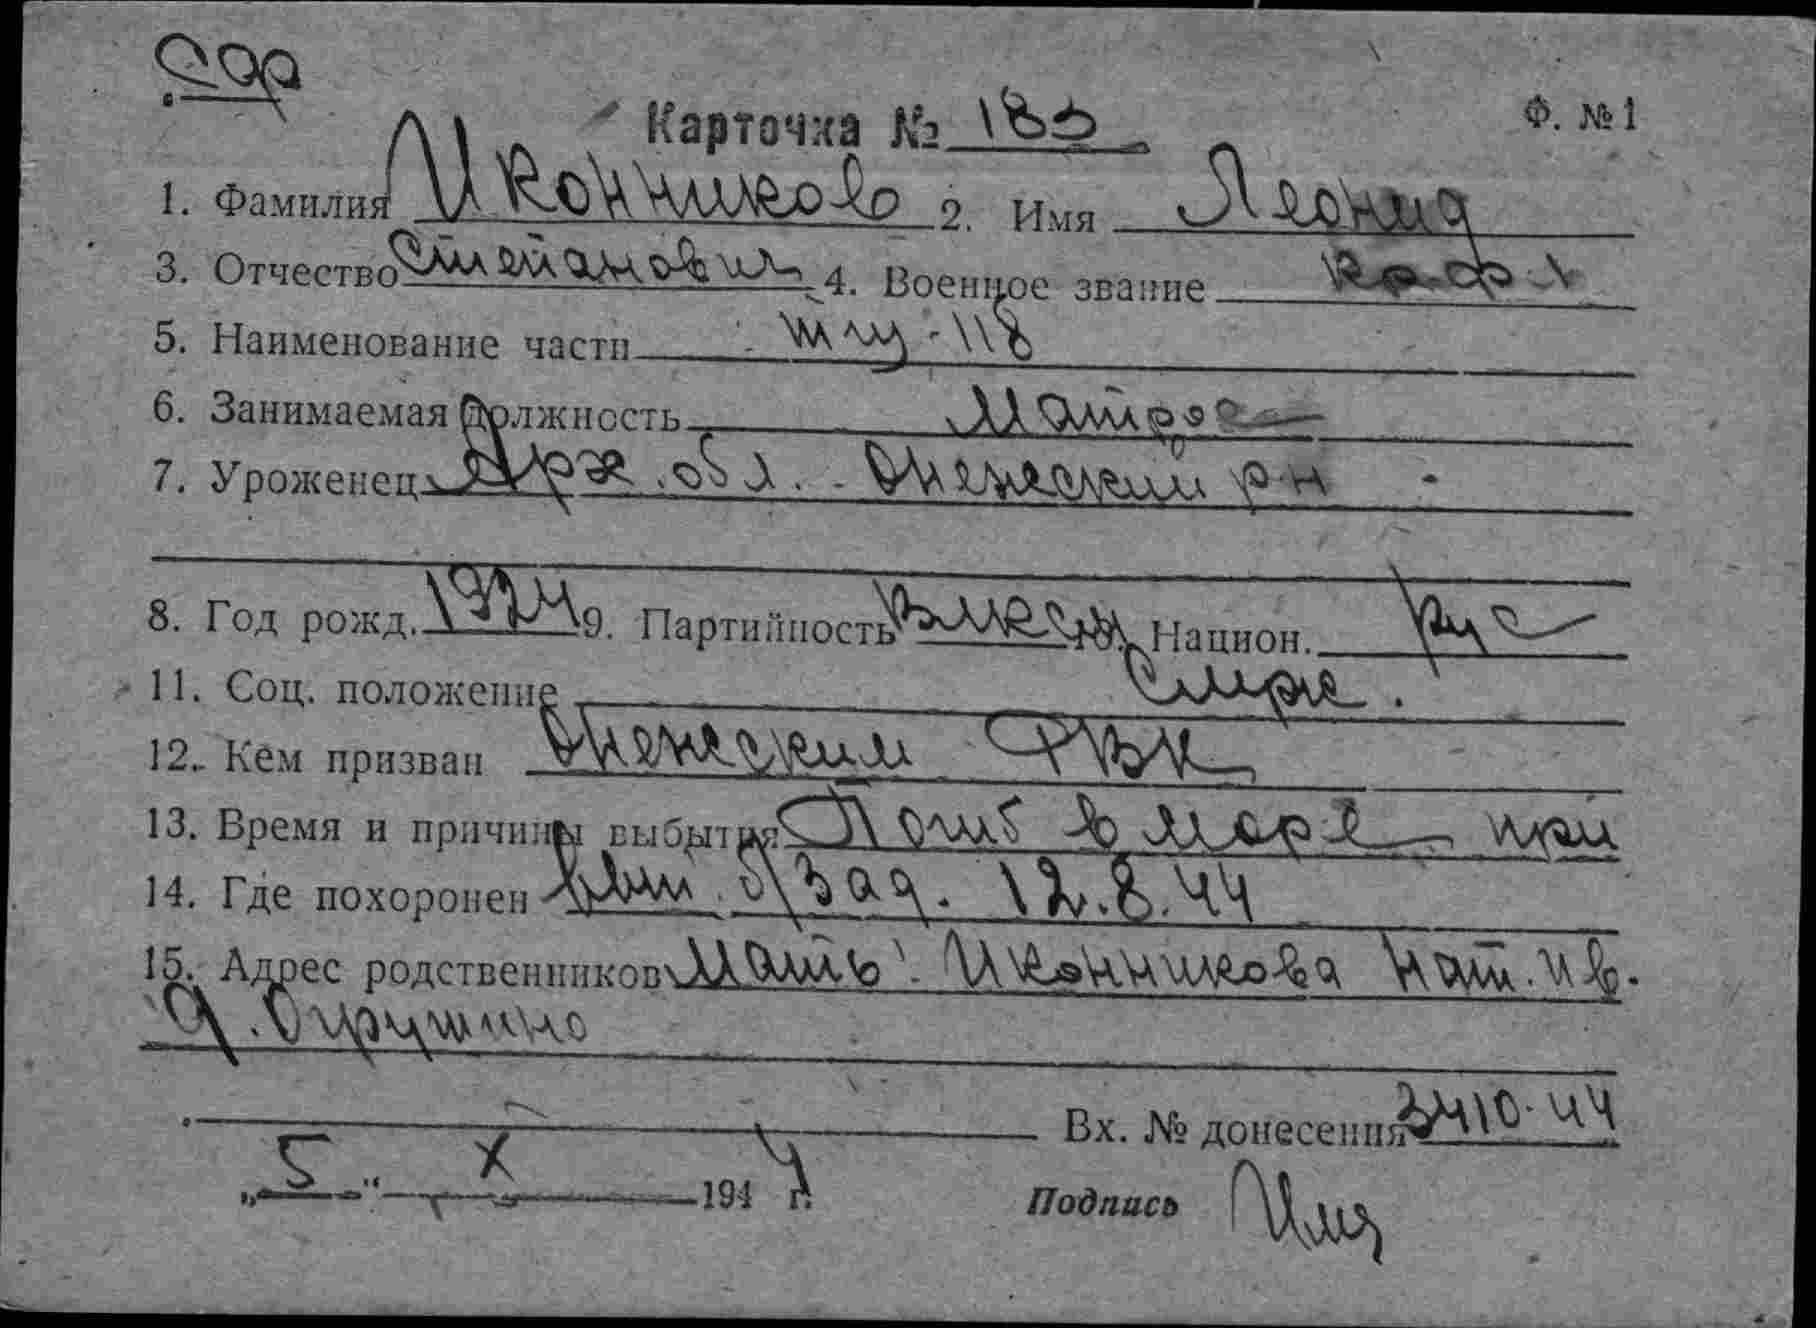 Карточка № 183 Ф. №1
1. Фамилия Иконников 2. Имя Леонид
3. Отчество Степанович 4. Военное звание кр-ф
5. Наименование части тщ-118
6. Занимаемая должность Матрос
7. Уроженец Арх. обл. - Онежский р-н
8. Год рожд. 1924 9. Партийность ВЛКСМ 10. Национ. рус
11. Соц. положение Служ.
12. Кем призван Онежским РВК
13. Время и причины выбытия Погиб в море при
14. Где похоронен вып. б/зад. 12.8.44
15. Адрес родственников Мать: Иконникова Нат. Ив.
д.
Вх. № донесения 3410-44
„5“ X 1944 г. Подпись